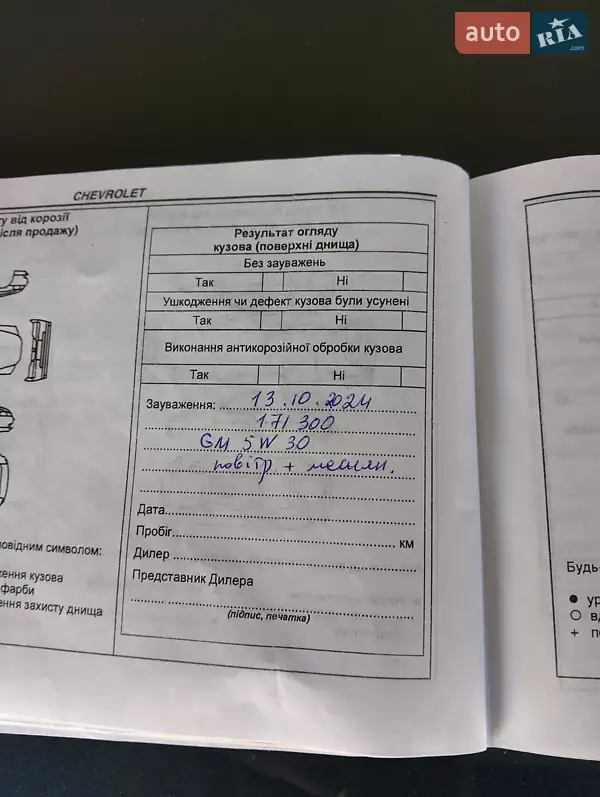 auto RIA .com
CHEVROLET
ту від корозії
ісля продажу)
Результат огляду
кузова (поверхні днища)
Без зауважень
Так Ні
Ушкодження чи дефект кузова були усунені
Так Ні
Виконання антикорозійної обробки кузова
Так Ні
Зауваження: 13.10.2024
171 300
GM 5W30
повітр + маслян.
Дата
Пробіг км
Дилер
Представник Дилера
(підпис, печатка)
повідним символом:
ження кузова
фарби
ення захисту днища
Будь-
● ур
○ в
+ по